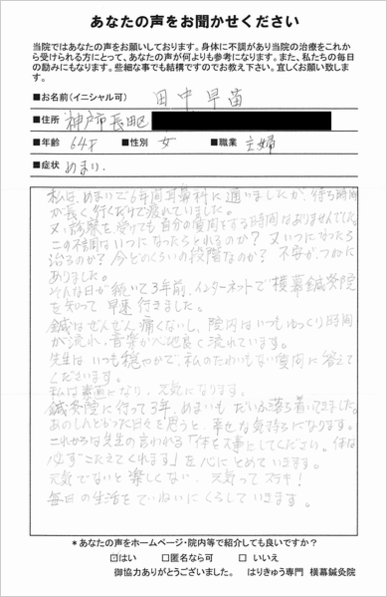 あなたの声をお聞かせください
当院ではあなたの声をお願いしております。身体に不調があり当院の治療をこれか
ら受けられる方にとって、あなたの声が何よりも参考になります。また、私たちの毎日
の励みにもなります。些細な事でも結構ですのでお教え下さい。宜しくお願い致しま
す。
■お名前(イニシャル可) 田中早苗
■住所 神戸市長田区
■年齢 64才 ■性別 女 ■職業 主婦
■症状 めまい
私は、めまいで6年間耳鼻科に通いましたが、待ち時間
が長く行くだけで疲れていました。
又、診察を受けても自分の質問をする時間はありませんでした。
この不調はいつになったらとれるのか？又いつになったら
治るのか？今どのくらいの段階なのか？不安がつねに
ありました。
そんな日が続いて3年前、インターネットで横幕鍼灸院
を知って早速行きました。
鍼はぜんぜん痛くないし、院内はいつもゆっくり時間
が流れ、音楽が心地良く流れています。
先生はいつも穏やかで、私のたわいもない質問に答えて
くださいます。
私は素直になり、元気になります。
鍼灸院に行って3年、めまいもだいぶ落ち着いてきました。
あのしんどかった日々を思うと、幸せな気持ちになります。
これからは先生の言われる「体を大事にしてください。体は
必ずこたえてくれます」を心にとめていきます。
元気でないと楽しくない、元気ってステキ！
毎日の生活をていねいにくらしていきます。
*あなたの声をホームページ・院内等で紹介しても良いですか？
☑はい □匿名なら可 □いいえ
御協力ありがとうございました。 はりきゅう専門 横幕鍼灸院